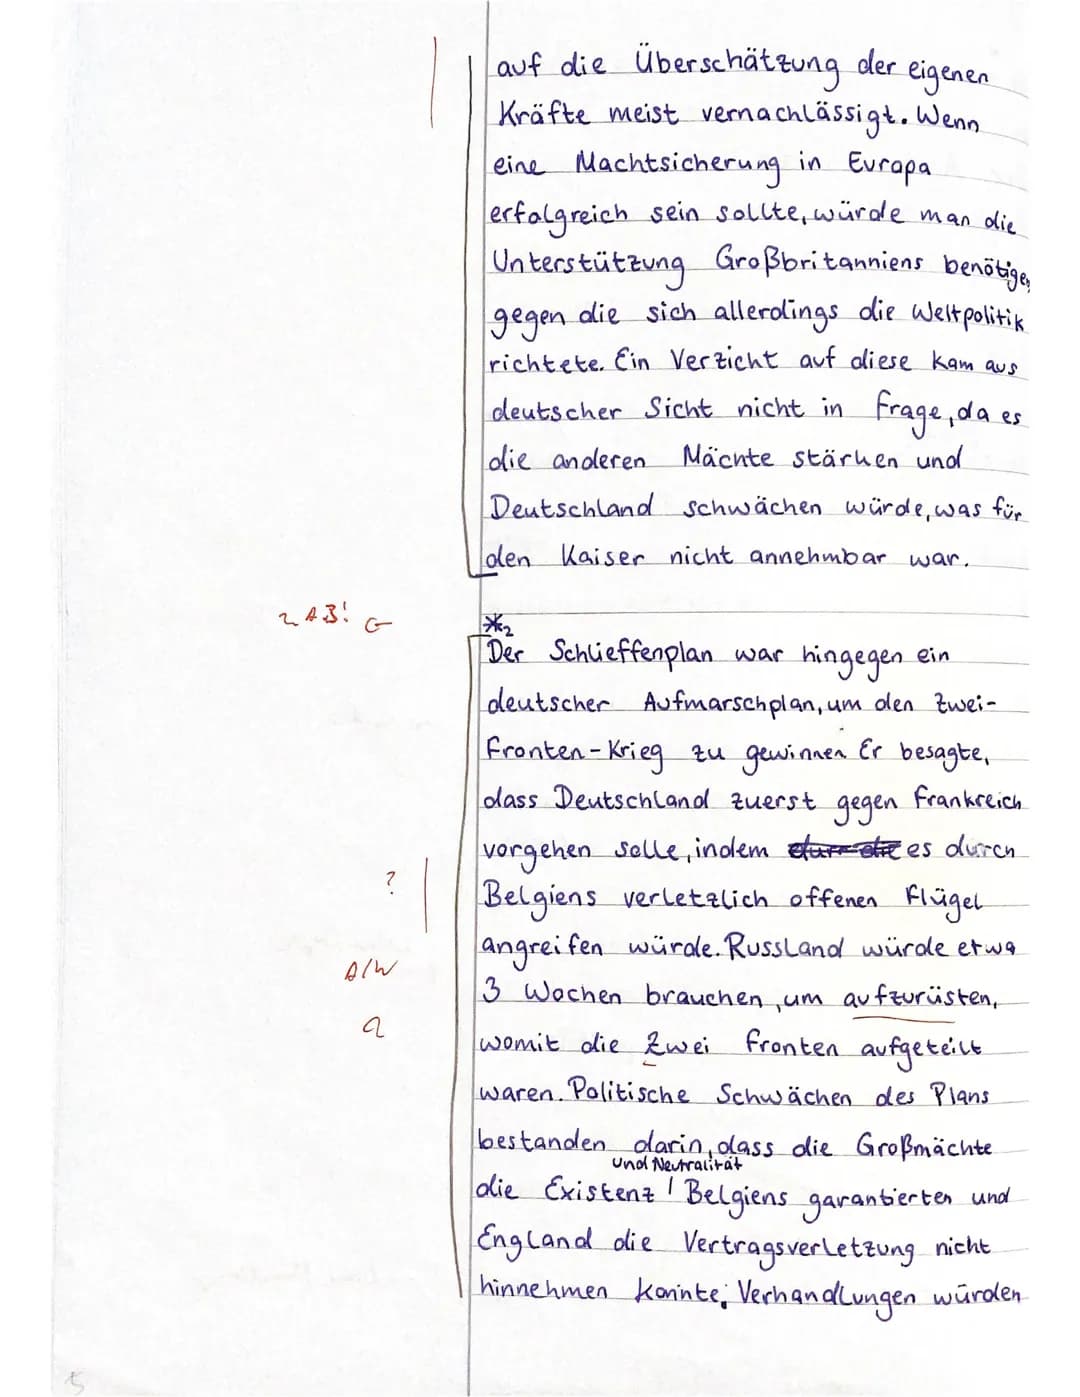 auf die Überschätzung der eigenen
Kräfte meist vernachlässigt. Wenn
eine Machtsicherung in Europa
erfolgreich sein sollte, würde man die
Unterstützung Großbritanniens benötigen,
gegen die sich allerdings die Weltpolitik
richtete. Ein Verzicht auf diese kam aus
deutscher Sicht nicht in Frage, da es
die anderen Mächte stärken und
Deutschland schwächen würde, was für
den Kaiser nicht annehmbar war.
2 AB! G
*2
Der Schlieffenplan war hingegen ein
deutscher Aufmarschplan, um den Zwei-
Fronten-Krieg zu gewinnen. Er besagte,
dass Deutschland zuerst gegen Frankreich
vorgehen solle, indem es durch
? Belgiens verletzlich offenen Flügel
angreifen würde. Russland würde etwa
A/W
3 Wochen brauchen, um aufzurüsten,
womit die Zwei Fronten aufgeteilt
waren. Politische Schwächen des Plans
bestanden darin, dass die Großmächte
und Neutralität
die Existenz Belgiens garantierten und
England die Vertragsverletzung nicht
hinnehmen konnte; Verhandlungen würden
5